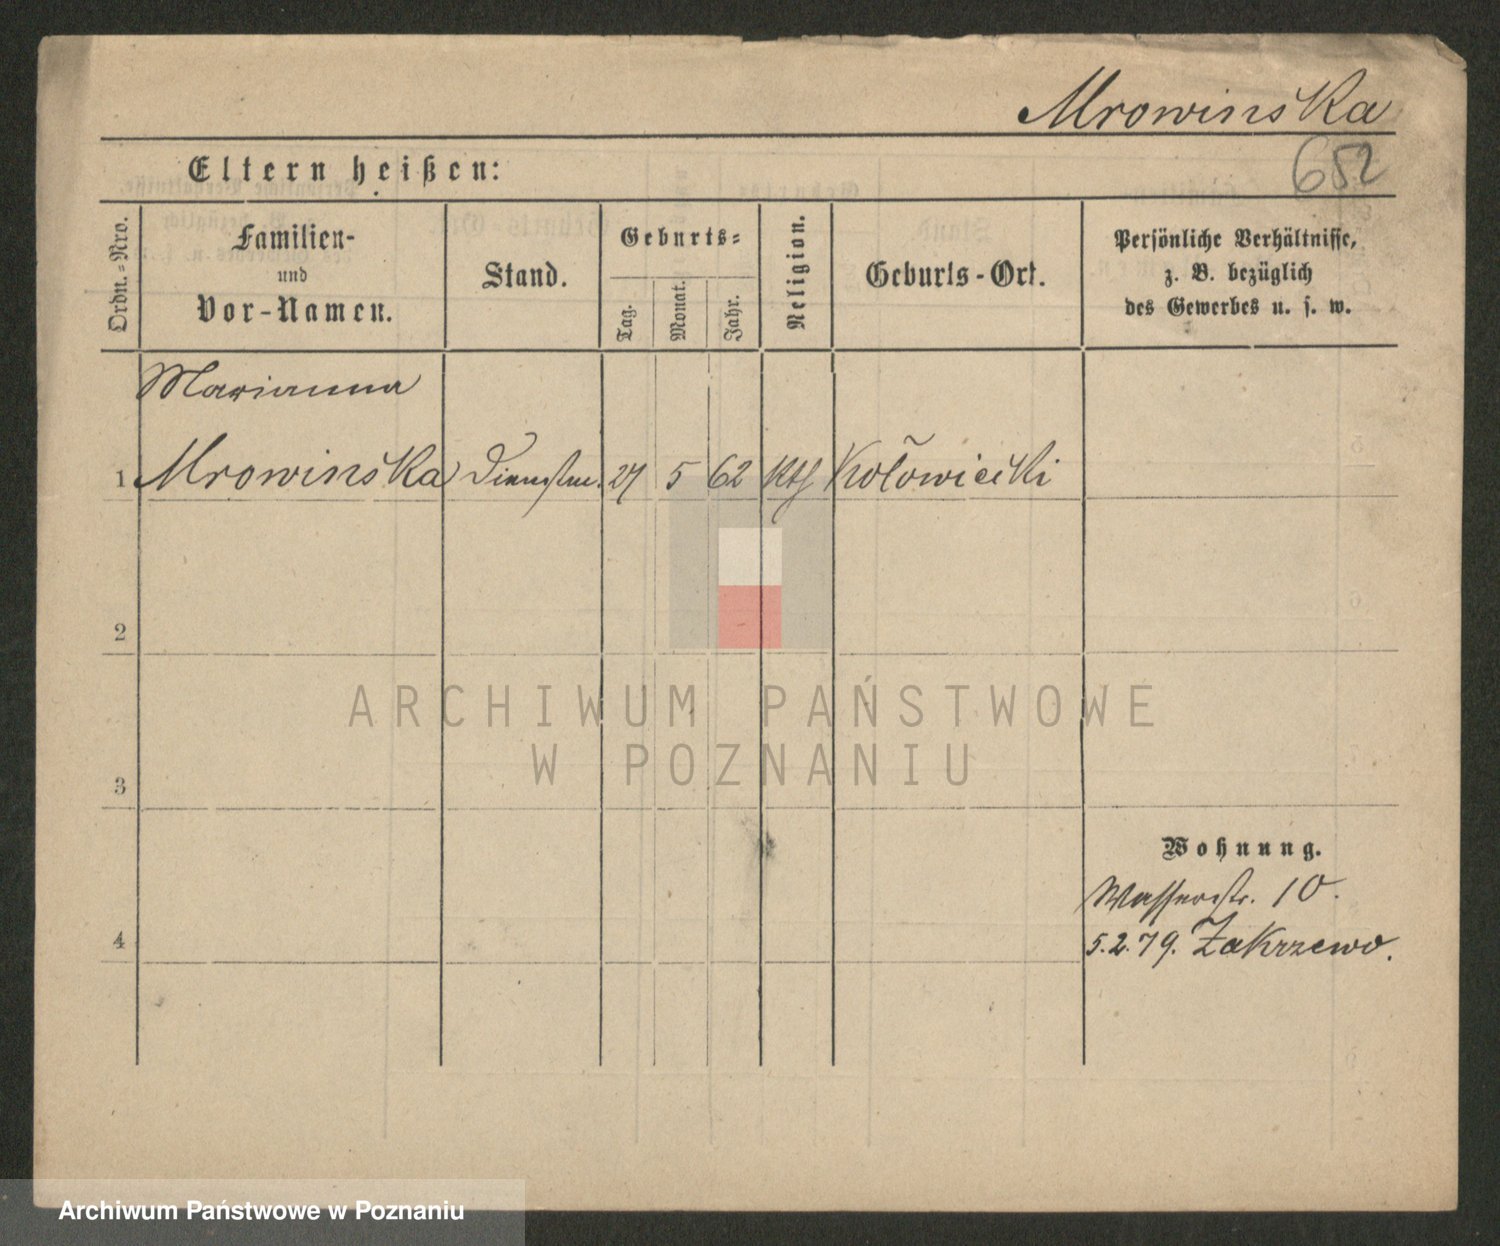 Mrowinska
652
Eltern heißen:
Ordn.-Nro.
Familien-
und
Vor-Namen.
Stand.
Geburts-
Tag.
Monat.
Jahr.
Religion.
Geburts-Ort.
Persönliche Verhältnisse,
z. B. bezüglich
des Gewerbes u. s. w.
Marianna
1 Mrowinska 5 62 kth
2
ARCHIWUM PAŃSTWOWE
W POZNANIU
3
Wohnung.
Wasserstr. 10.
4 5.2.79. Zakrzewo.
Archiwum Państwowe w Poznaniu